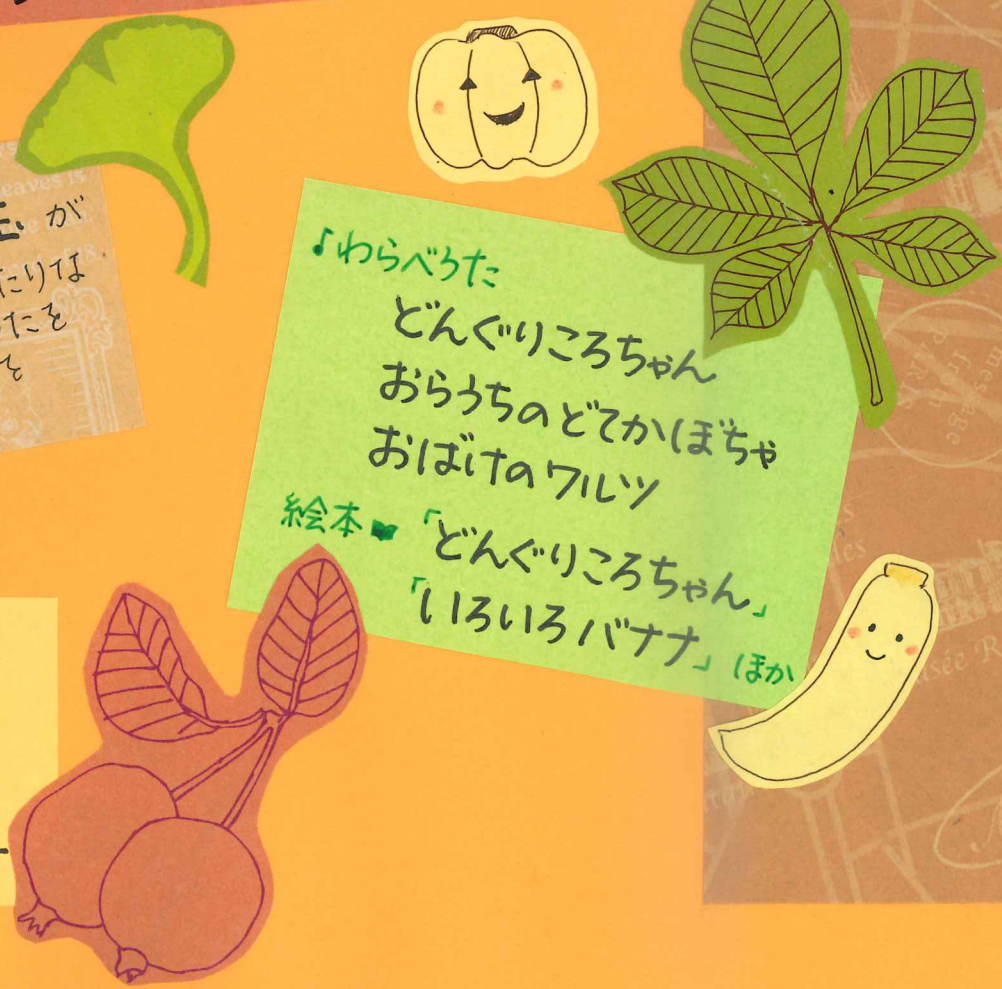 が
たりは
たを
を
♪わらべうた
どんぐりころちゃん
おらうちのどてかぼちゃ
おばけのワルツ
絵本 「どんぐりころちゃん」
「いろいろバナナ」ほか